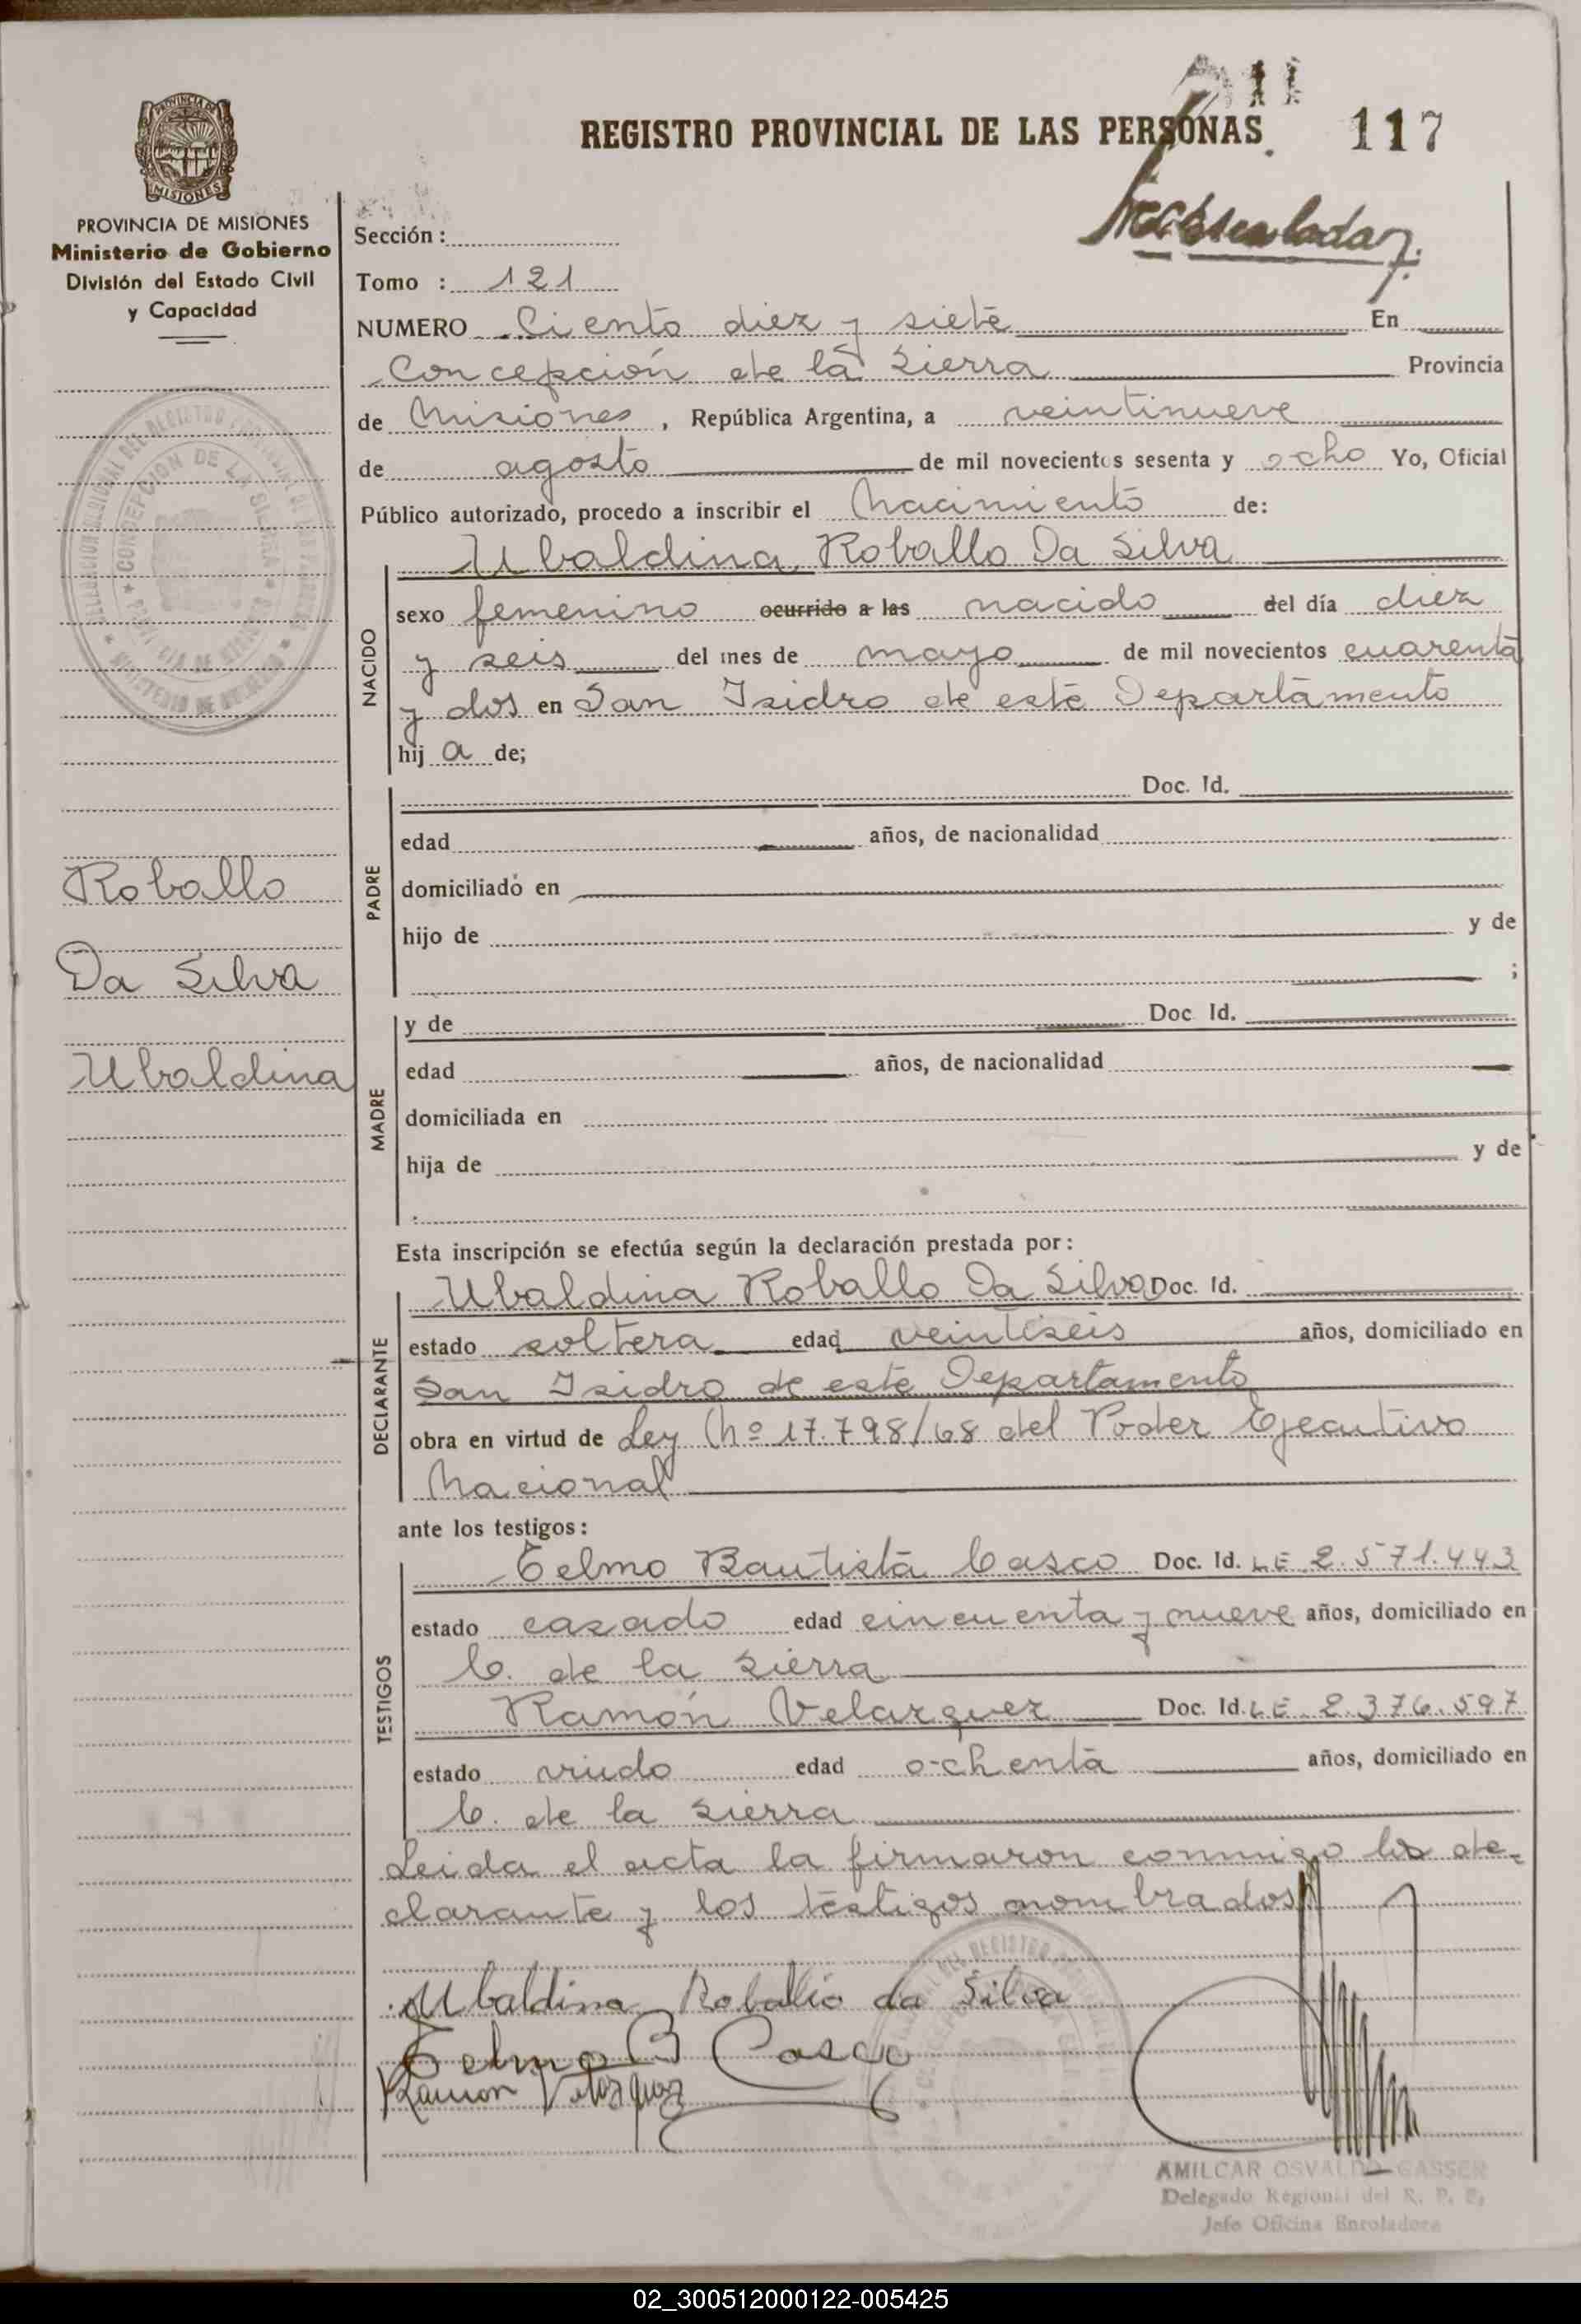 REGISTRO PROVINCIAL DE LAS PERSONAS
117
PROVINCIA DE MISIONES
Ministerio de Gobierno
División del Estado Civil
y Capacidad
Sección :
Tomo : 121
NUMERO Ciento diez y siete En
Concepción de la Sierra Provincia
de Misiones, República Argentina, a veintinueve
de agosto de mil novecientos sesenta y ocho Yo, Oficial
Público autorizado, procedo a inscribir el Nacimiento de:
Ubaldina Roballo Da Silva
NACIDO
sexo femenino ocurrido a las nacido del día diez
y seis del mes de mayo de mil novecientos cuarenta
y dos en San Isidro de este Departamento
hij a de;
PADRE
Doc. Id.
edad años, de nacionalidad
domiciliado en
hijo de y de
;
Roballo
Da Silva
Ubaldina
MADRE
y de Doc. Id.
edad años, de nacionalidad
domiciliada en
hija de y de
Esta inscripción se efectúa según la declaración prestada por :
DECLARANTE
Ubaldina Roballo Da Silva Doc. Id.
estado soltera edad veintiseis años, domiciliado en
San Isidro de este Departamento
obra en virtud de Ley Nº 17.798/68 del Poder Ejecutivo
Nacional
ante los testigos :
TESTIGOS
Telmo Bautista Casco Doc. Id. LE 2.571.443
estado casado edad cincuenta y nueve años, domiciliado en
C. de la Sierra
Ramón Velazquez Doc. Id. LE 2.376.597
estado viudo edad ochenta años, domiciliado en
C. de la Sierra
Leida el acta la firmaron conmigo la de-
clarante y los testigos nombrados
Ubaldina Roballo da Silva
Telmo B Casco
Ramon Velazquez
AMILCAR OSVALDO GASSER
Delegado Regional del R. P. P.
Jefe Oficina Enroladora
02_300512000122-005425